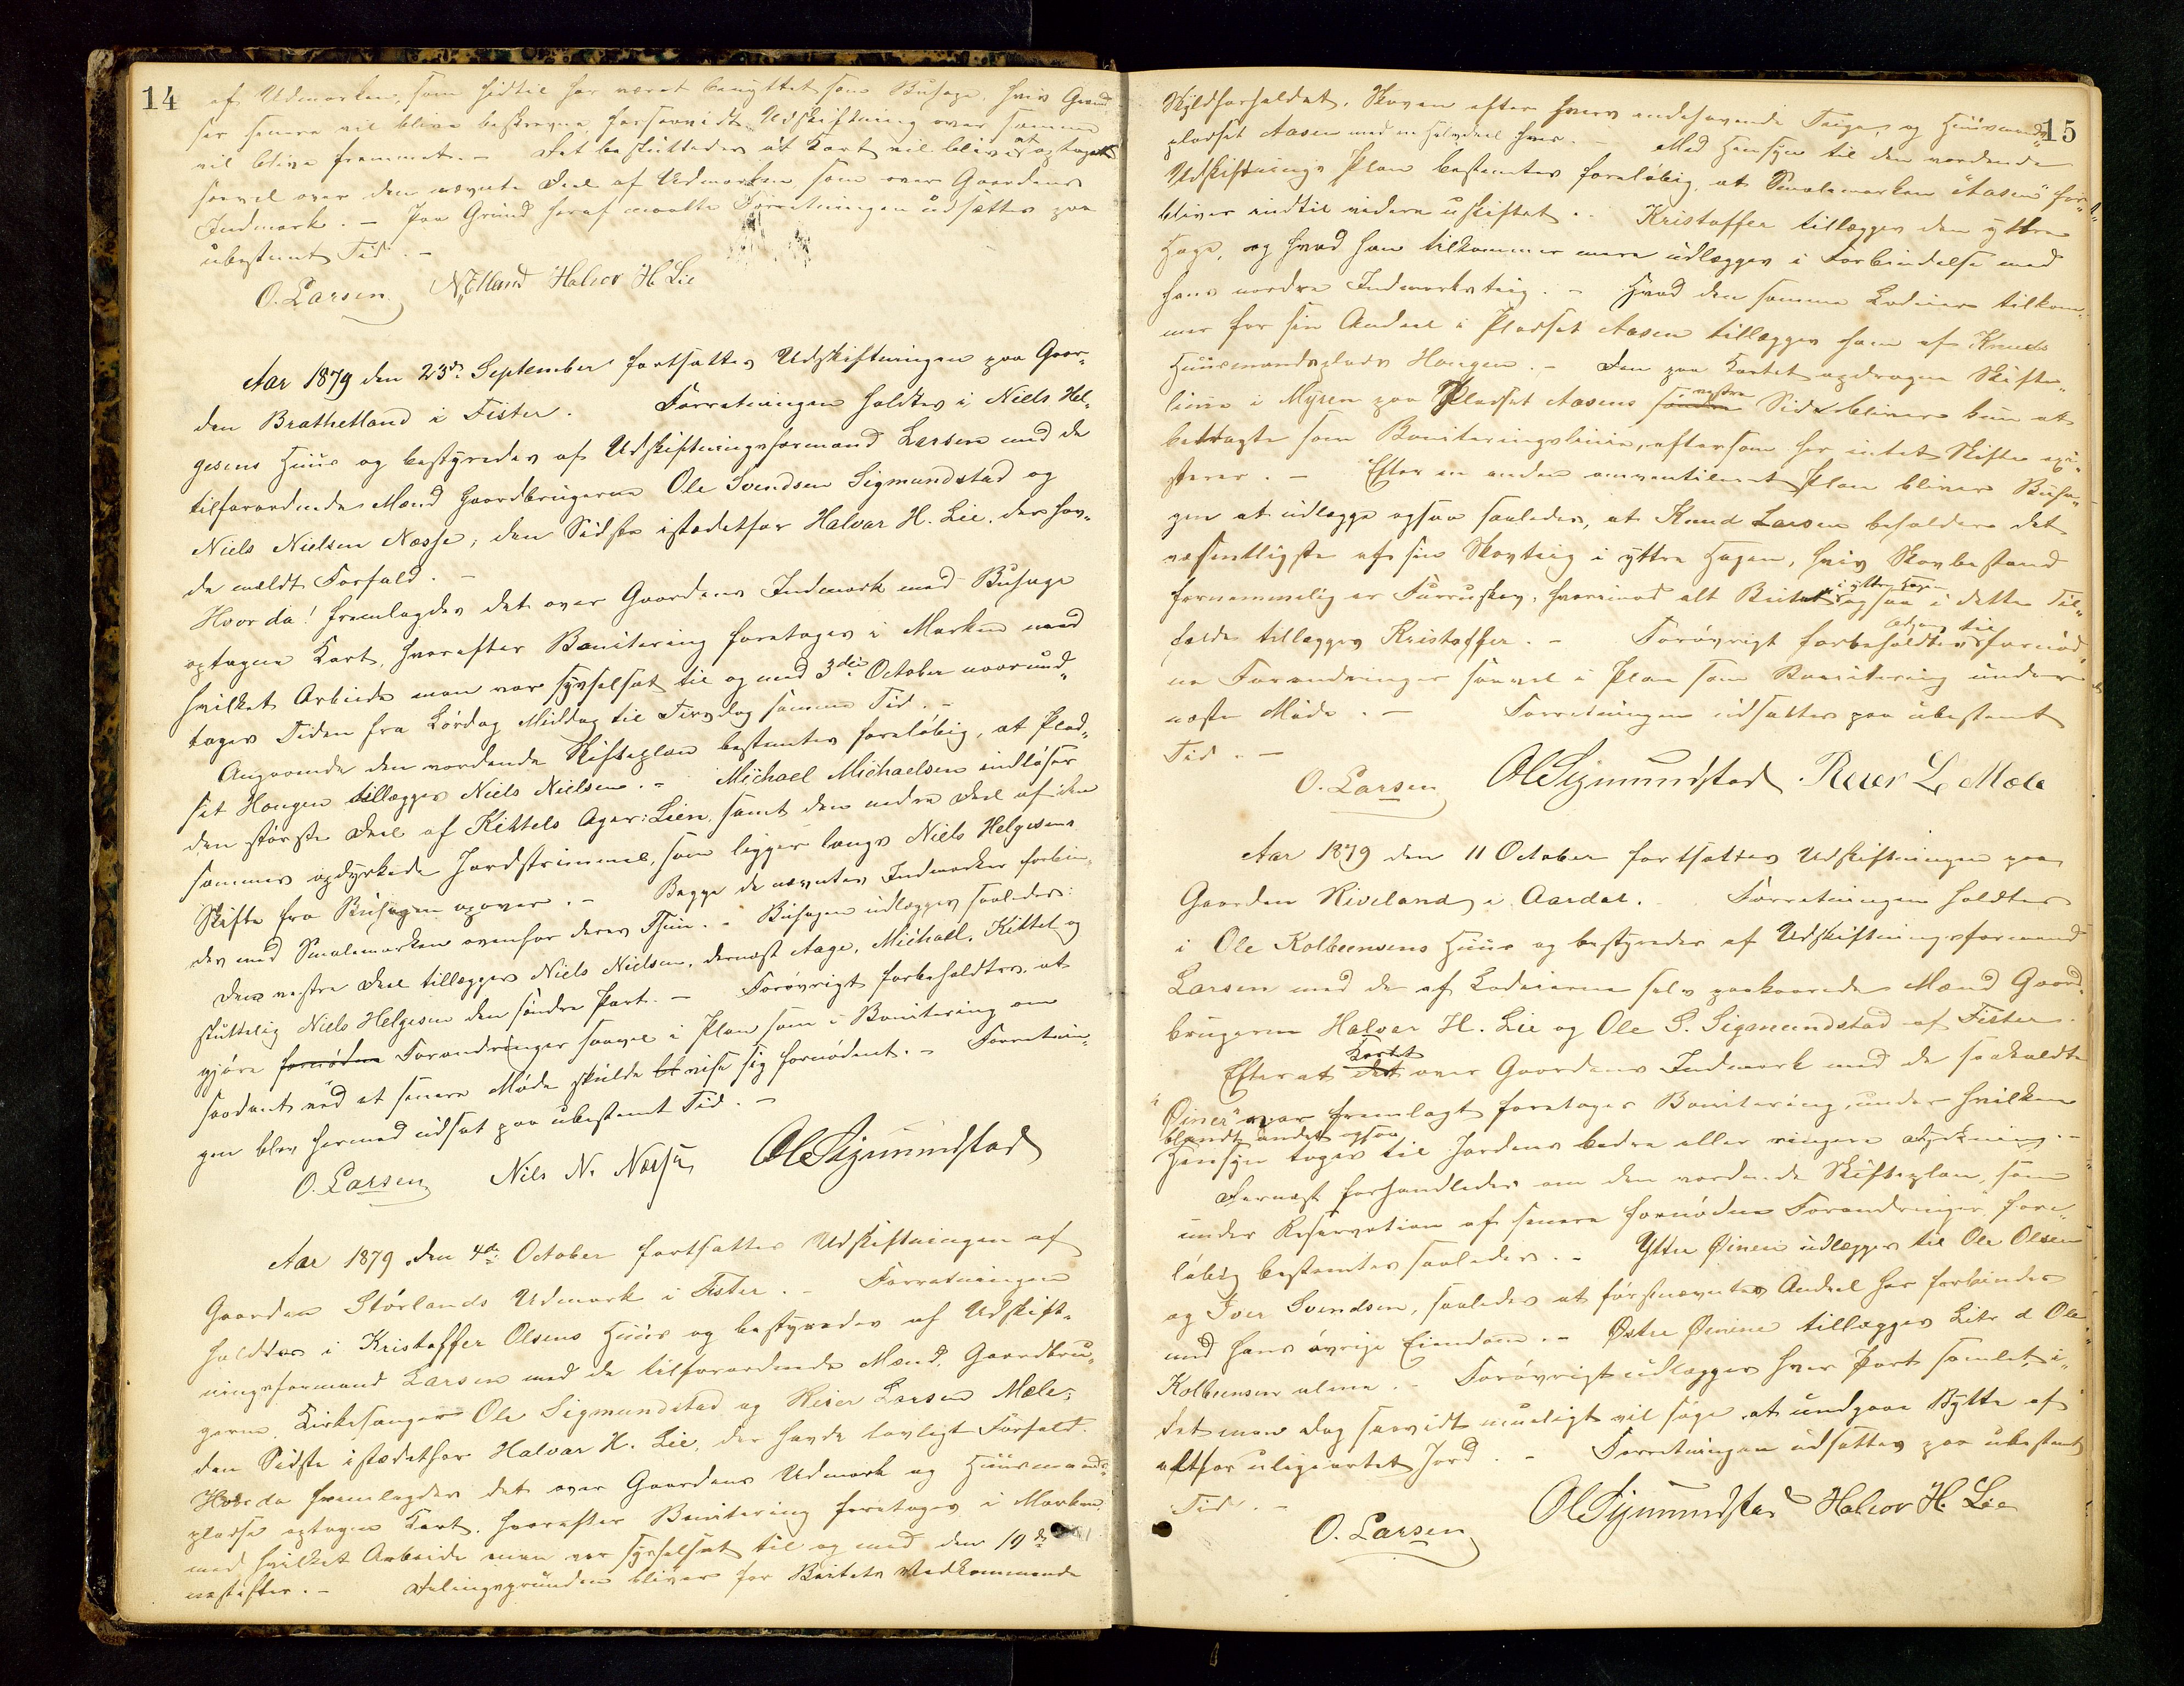 14
af Udmarken, som hidtil har været benyttet som Buhage, hvis Grænd-
ser senere vil blive beskrevne, forsaavidt Udskiftning over samme
vil blive fremmet. – Det besluttedes at Kart vil blive at optage
saavel over den nævnte Deel af Udmarken som over Gaardens
Indmark. – Paa Grund heraf maatte Forretningen udsættes paa
ubestemt Tid. –
O. Larsen N Elland Halvor H. Lie
Aar 1879 den 23de September fortsattes Udskiftningen paa Gaar-
den Brathetland i Fister. Forretningen holdtes i Niels Hel-
gesens Huus og bestyredes af Udskiftningsformand Larsen med de
tilforordnede Mænd Gaardbrugerne Ole Svendsen Sigmundstad og
Niels Nielsen Næsse, den Sidste istedetfor Halvar H. Lie, der hav-
de meldt Forfald. –
Hvor da! fremlagdes det over Gaardens Indmark med Buhage
optagne Kart, hvorefter Bonitering foretoges i Marken med
hvilket Arbeide man var sysselsat til og med 3die October naarund-
toges Tiden fra Lørdag Middag til Tirsdag samme Tid. –
Angaaende den vordende Skifteplan bestemtes foreløbig, at Plad-
set Haugen tillægges Niels Nielsen. – Michael Michaelsen indløser
den største Deel af Kittels Ager: Lien, samt den nedre Deel af den
sammes opdyrkede Jordstrimmel, som ligger langs Niels Helgesens
Skifte fra Buhagen opover. – Begge de nævntes Indmarker forbin-
des med Smalemarken ovenfor deres Tun. – Buhagen udlægges saaledes:
Den vestre Deel tillægges Niels Nielsen, dernæst Aage, Michael, Kittel og
sluttelig Niels Helgesen den søndre Part. – Forøvrigt forbeholdtes, at
gjøre fornødne Forandringer saavel i Plan som i Bonitering om
saadant ved et senere Møde skulde bl vise sig fornødent. – Forretnin-
gen blev hermed udsat paa ubestemt Tid. –
O. Larsen Nils N. Næsse Ole Sigmundstad
Aar 1879 den 4de October fortsattes Udskiftningen af
Gaarden Størlands Udmark i Fister. – Forretningen
holdtes i Kristoffer Olsens Huus og bestyredes af Udskift-
ningsformand Larsen med de tilforordnede Mænd, Gaardbru-
gerne, Kirkesanger Ole Sigmundstad og Reier Larsen Mæle;
den Sidste istedetfor Halvar H. Lie, der havde lovligt Forfald.
Hvor da fremlagdes det over Gaardens Udmark og Huusmands-
pladse optagne Kart, hvorefter Bonitering foretoges i Marken
med hvilket Arbeide man var sysselsat til og med den 10de
næstefter. – Delingsgrunden bliver for Beitets Vedkommende
15
Skyldforholdet, Skoven efter hvers indehavende Teige, og Huusmands-
pladset Aasen med en Halvdeel hver. – Med Hensyn til den vordende
Udskiftnings Plan bestemtes foreløbig, at Smalemarken "Aasen"
bliver indtil videre uskiftet. – Kristoffer tillægges den yttre
Hage, og hvad han tilkommer mere udlægges i Forbindelse med
hans nordre Indmarksteig. – Hvad den samme Lodeier tilkom-
mer for sin Andeel i Pladset Aasen tillægges ham af Knuds
Huusmandsplads Haugen. – Den paa Kartet opdragne Skifte-
linie i Myren paa Pladset Aasens søndre vestre Side bliver kun at
betragte som Boniteringslinie, eftersom her intet Skifte exi-
sterer. – Efter en anden omventileret Plan bliver Buha-
gen at udlægge ogsaa saaledes, at Knud Larsen beholder det
væsentligste af sin Skovteig i yttre Hagen, hvis Skovbestand
fornemmelig er Furuskov, hvorimod alt Beitet i yttre Hagen ogsaa i dette Til-
fælde tillægges Kristoffer. – Forøvrigt forbeholdtes Adgang til fornød-
ne Forandringer saavel i Plan som Bonitering under
næste Møde. – Forretningen udsattes paa ubestemt
Tid. –
O. Larsen Ole Sigmundstad Reier L. Mæle
Aar 1879 den 11 October fortsattes Udskiftningen paa
Gaarden Riveland i Aardal. Forretningen holdtes
i Ole Kolbeensens Huus og bestyredes af Udskiftningsformand
Larsen med de af Lodeierne selv paakaarede Mænd Gaard-
brugerne Halvar H. Lie og Ole S. Sigmundstad af Fister.
Efterat det Kartet over Gaardens Indmark med de saakaldte
"Øiner" var fremlagt foretoges Bonitering, under hvilken
blandt andet ogsaa
Hensyn toges til Jordens bedre eller ringere Dyrkning. –
Dernæst forhandledes om den vordende Skifteplan, som
under Reservation af senere fornødne Forandringer, fore-
løbig bestemtes saaledes. – Yttre Øinene udlægges til Ole Olsen
og Iver Svendsen, saaledes at førstnævntes Andeel her forbindes
med hans øvrige Eiendom. – Østre Øinene tillægges Litr. d Ole
Kolbeensen alene. – Forøvrigt udlægges hver Part samlet, i-
det man dog saavidt mueligt vil søge at undgaae Bytte af
altfor uligeartet Jord. – Forretningen udsattes paa ubestemt
Tid. –
O. Larsen Ole Sigmundstad Halvor H. Lie